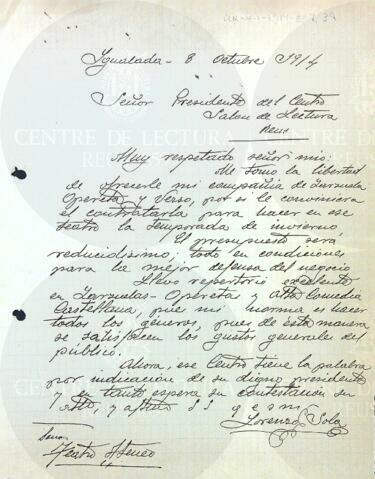 Igualada - 8 Octubre 1914
Señor Presidente del Centro
Salon de Lectura
Reus
Muy respetado señor mio:
Me tomo la libertad
de ofrecerle mi compañia de Zarzuela
Opereta y Verso, por si le conviniera
el contratarla para hacer en ese
teatro la temporada de invierno,
El presupuesto será
reducidissimo; todo en condiciones
para la mejor defensa del negocio
Llevo repertorio excelente
en Zarzuelas-Operetas y alta Comedia
Castellana, pues mi norma es hacer
todos los géneros, pues de esta manera
se satisfacen los gustos generales del
público.
Ahora, ese Centro tiene la palabra
por indicacion de su digno presidente
y en tanto espera su contestacion su
atto, y afmo S.S. q e s m
Lorenzo Sola
Teatro Ateneo
CENTRE DE LECTURA